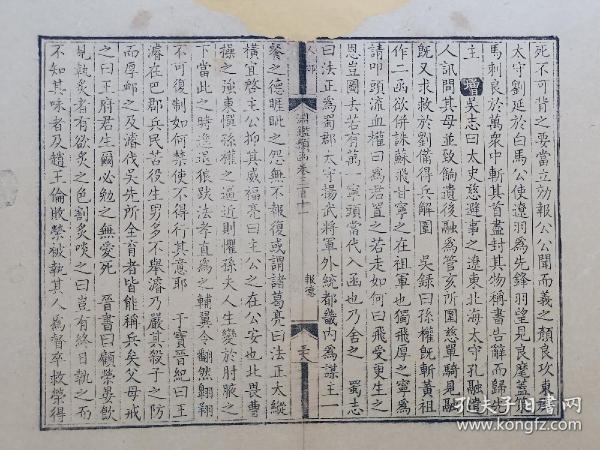 死不可背之要當立効報公公聞而義之顏良攻東郡
太守劉延於白馬公使遼羽為先鋒羽望見良麾蓋策
馬刺良於萬衆中斬其首盡封其物稱書告辭而歸先
主 增吳志曰太史慈避事之遼東北海太守孔融
人訊問其母并致餉遺後融為管亥所圍慈單騎見融
既又求救於劉備得兵解圍 吳録曰孫權既斬黃祖
作二函欲併誅蘇飛甘寧之在祖軍也獨飛厚之寧為
請叩頭流血權曰為君置之若走如何曰飛受更生之
恩豈圖去若有萬一寧頭當代入函也乃舍之 蜀志
曰法正為蜀郡太守揚武將軍外統都畿内為謀主一
人部
淵鑑類函卷三百十一
報德
餐之德睚眦之怨無不報復或謂諸葛亮曰法正太縱
橫宜啓主公抑其威福亮曰主公之在公安也北畏曹
操之強東憚孫權之逼近則懼孫夫人生變於肘腋之
下當此之時進退狼跋法孝直為之輔翼令翻然翱翔
不可復制如何禁使不得行其意耶 于寶晉紀曰王
濬在巴郡兵民苦役生男多不舉濬乃嚴其殺子之防
而厚卹之及濬伐吳先所全育者皆能稱兵矣父母戒
之曰王府君生爾必勉之無愛死 晉書曰顧榮晏飲
見執炙者有欲炙之色割炙啖之曰豈有終日執之而
不知其味者及趙王倫敗榮被執其人為督卒救榮得
孔夫子旧书网